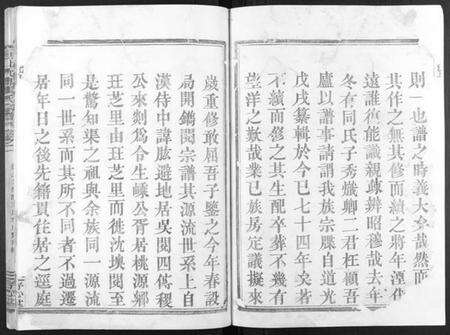 則一也譜之時義大矣哉然而
其作之無其修而續之將年湮代
遠誰復能識親疎辨昭穆哉去年
冬有同氏子秀熾卿二君枉顧吾
廬以譜事請謂我族宗牒自道光
戊戌纂輯於今已七十四年矣若
不續而修之其生配卒葬不幾有
望洋之歎哉業已族房定議擬來
歲重修敢屈吾子鑒之今年春設
局開鐫閱宗譜其源流世系上自
漢侍中諱肱避地居吳閱四傳稷
公來剡爲令生嵊公胥居桃源鄉
玨芝里由玨芝里而徙沈墺閱至
是驚知渠之祖與余族同一源流
同一世系而其所不同者不過遷
居年日之後先籍貫住居之逕庭